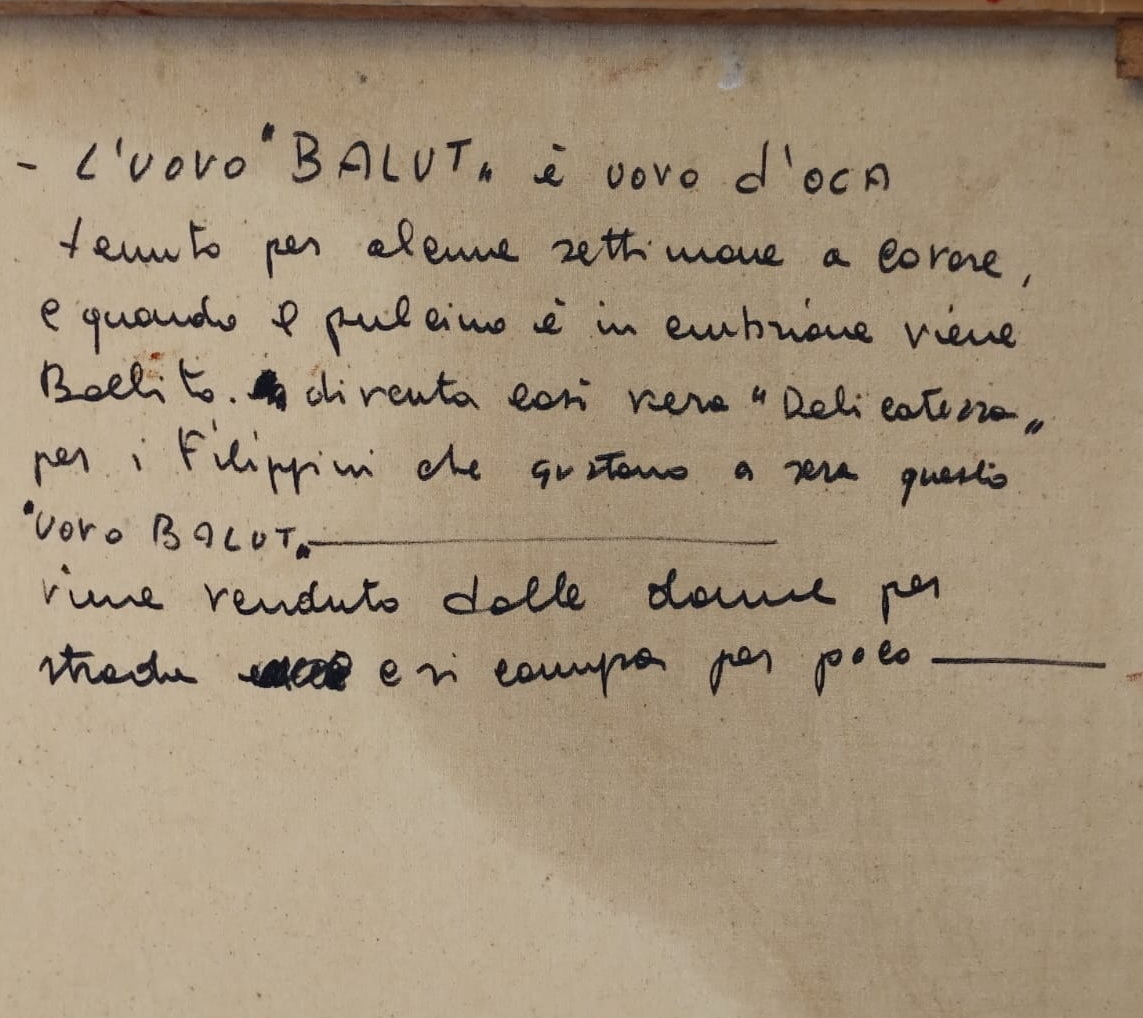 - L'UOVO "BALUT„ è uovo d'OCA
tenuto per alcune settimane a covare,
e quando il pulcino è in embrione viene
Bollito. diventa così vera "Delicatezza„
per i Filippini che gustano a sera questo
"UOVO BALUT„
viene venduto dalle donne per
strada e si compra per poco